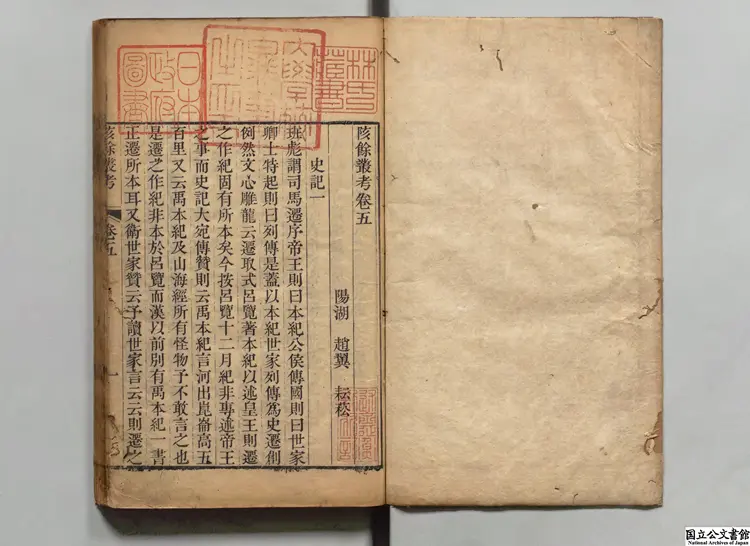 陔餘叢考卷五
陽湖 趙翼 耘菘
史記一
班彪謂司馬遷序帝王則曰本紀公侯傳國則曰世家
卿士特起則曰列傳是蓋以本紀世家列傳爲史遷創
例然文心雕龍云遷取式呂覽著本紀以述皇王則遷
之作紀固有所本矣今按呂覽十二月紀非專述帝王
之事而史記大宛傳贊則云禹本紀言河出崑崙高五
百里又云禹本紀及山海經所有怪物予不敢言之也
是遷之作紀非本於呂覽而漢以前別有禹本紀一書
正遷所本耳又衛世家贊云予讀世家言云云則遷之
陔餘叢考 卷五 一
林氏藏書
日本政府圖書
国立公文書館
National Archives of Japan